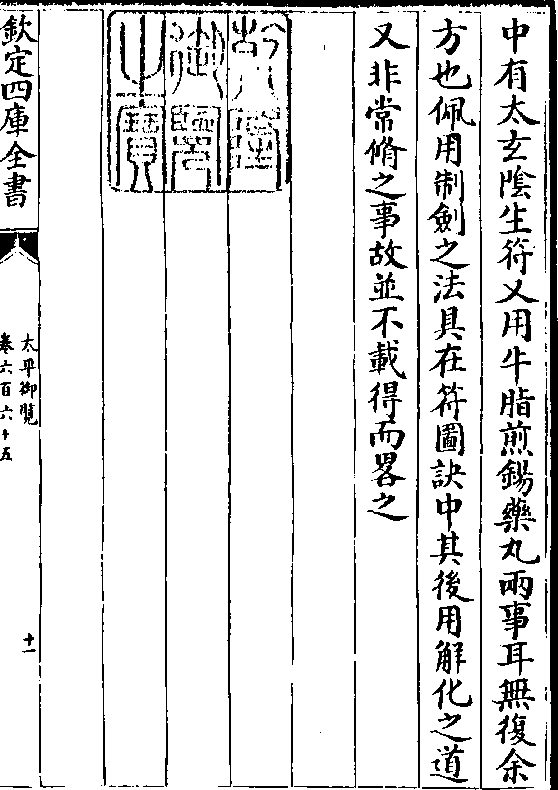 中有太玄隂生符又用牛脂煎錫藥丸兩事耳無復余
方也佩用制劒之法具在符圖訣中其後用解化之道
又非常脩之事故並不載得而畧之
乾隆御覽之寶
欽定四庫全書
太平御覽
卷六百六十五
十一